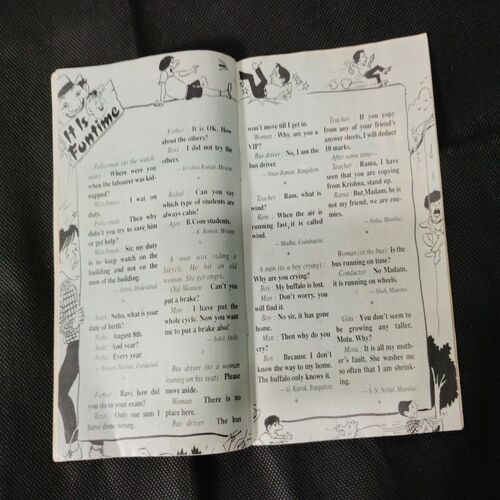 It Is
Funtime
Policeman (to the watch
man) : Where were you
when the labourer was kid-
napped?
Watchman : I was on
duty.
Policeman : Then why
didn't you try to save him
or get help?
Watchman : Sir, my duty
is to keep watch on the
building and not on the
men of the building.
Amit : Neha, what is your
date of birth?
Neha : August 8th.
Amit : And year?
Neha : Every year.
Father : Ravi, how did
you do in your exam?
Ravi : Only one sum I
have done wrong.
Father : It is OK. How
about the others?
Ravi : I did not try the
others.
— Krishna Kumar, Mysore.
Rahul : Can you say
which type of students are
always calm?
Ajay : B.Com students.
Kumar, Mysore.
A man was riding a
bicycle. He hit an old
woman. She got angry.
Old Woman : Can't you
put a brake?
Man : I have put the
whole cycle. Now you want
me to put a brake also!
— Ankit, Delhi.
Bus driver (to a woman
leaning on his seat) : Please
move aside.
Woman : There is no
place here.
Bus driver : The bus
won't move till I get in.
Woman : Why, are you a
VIP?
Bus driver : No, I am the
bus driver.
— Vinay Ranjan, Bangalore.
Teacher : Ram, what is
wind?
Ram : When the air is
running fast, it is called
wind.
— Madhu, Coimbatore.
A man (to a boy crying) :
Why are you crying?
Boy : My buffalo is lost.
Man : Don't worry, you
will find it.
Boy : No sir, it has gone
home.
Man : Then why do you
cry?
Boy : Because I don't
know the way to my home.
The buffalo only knows it.
— G. Kartik, Bangalore.
Teacher : If you copy
from any of your friend's
answer sheets, I will deduct
10 marks.
After some time—
Teacher : Rama, I have
seen that you are copying
from Krishna, stand up.
Rama : But Madam, he is
not my friend, we are ene-
mies.
— Neha, Mumbai.
Woman (in the bus) : Is the
bus running on time?
Conductor : No Madam,
it is running on wheels.
— Shah, Mumbai.
Gita : You don't seem to
be growing any taller,
Motu. Why?
Motu : It is all my moth-
er's fault. She washes me
so often that I am shrink-
ing.
— S. N. Nehal, Mumbai.